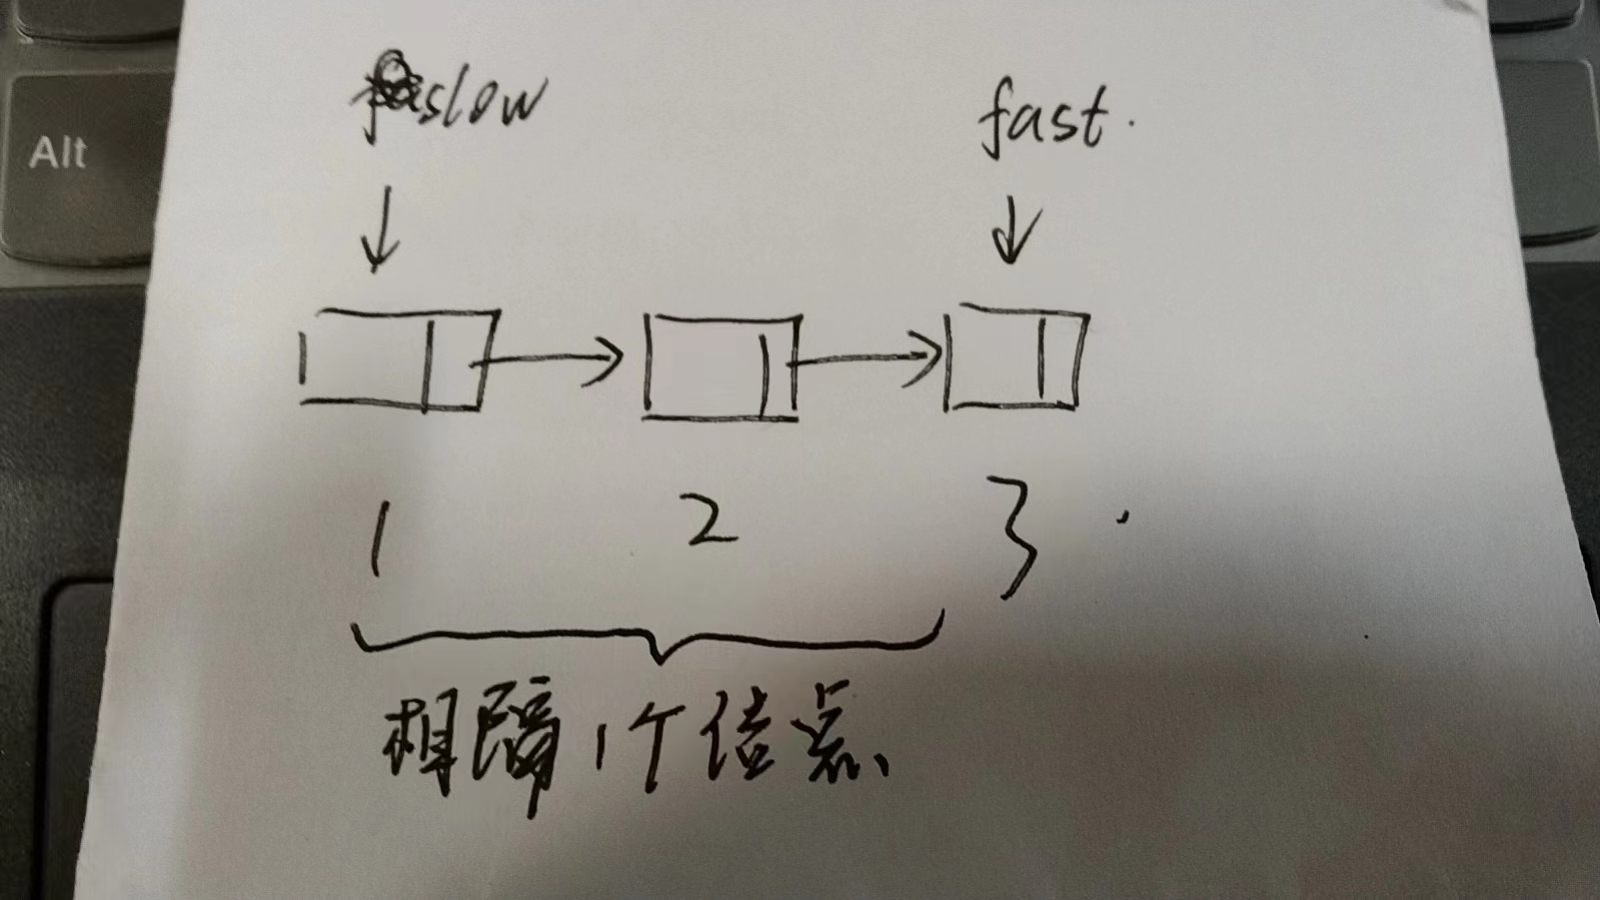 Alt
slow fast.
1 2 3
相隔1个结点